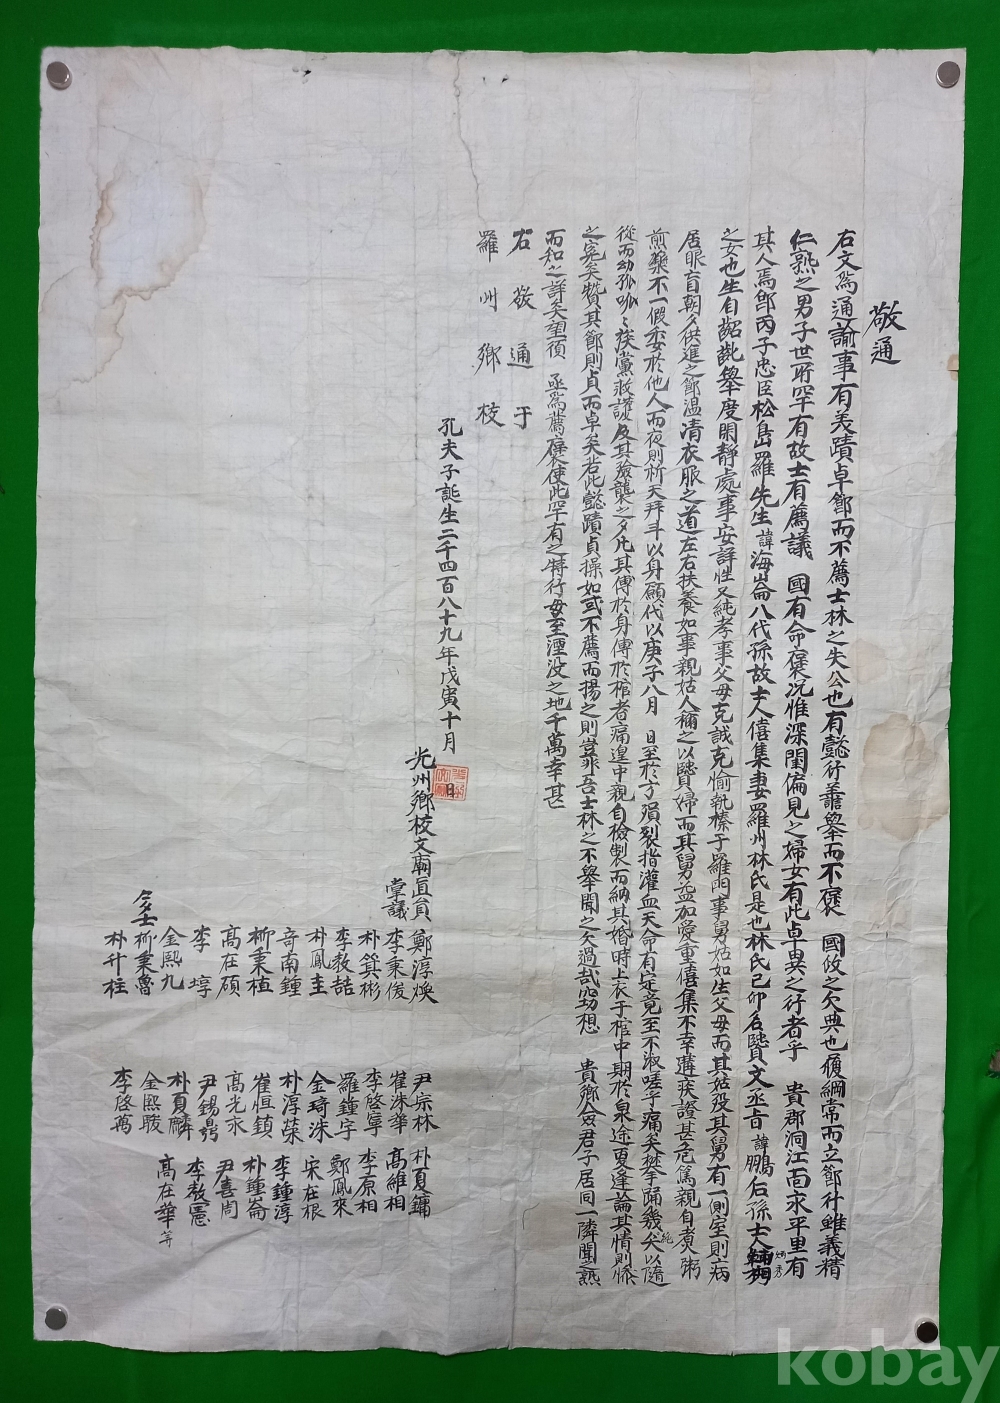 敬通
右文爲通諭事有義蹟卓節而不薦士林之失公也有懿行善擧而不褒 國攸之欠典也履綱常而立節行雖義精
仁熟之男子世所罕有故士有薦議 國有命褒况惟深閨偏見之婦女有此卓異之行者乎 貴郡洞江面永平里有
其人焉卽丙子忠臣松嵒羅先生諱海崙八代孫故士人僖集妻羅州林氏是也林氏己卯名賢文丞旨諱鵬后孫士人
之女也生自齠齔擧度閑靜處事安詳性又純孝事父母克誠克愉執榛于羅門事舅姑如生父母而其姑歿其舅有一側室則病
居眼盲朝夕供進之節溫凊衣服之道左右扶養如事親姑人稱之以賢婦而其舅益加愛重僖集不幸遘疾證甚危篤親自煮粥
煎藥不一假委於他人而夜則祈天拜斗以身願代以庚子八月 日至於方殞裂指灌血天命有定竟至不淑嗟乎痛矣擗踊幾絶矣以隨
從而幼孤呱々族黨救護及其殮襲之夕凡其傅於身傅於棺者痛遑中親自檢製而納其婚時上衣于棺中期於泉途更逢論其情則慘
之寃矣贊其節則貞而卓矣若此懿蹟貞操如或不薦而揚之則豈非吾士林之不擧聞之欠過哉窃想 貴鄕僉君子居同一隣聞之熟
而知之詳矣望須 亟爲薦褒使此罕有之特行毋至湮沒之地千萬幸甚
右敬通于
羅州鄕校
孔夫子誕生二千四百八十九年戊寅十月 日
光州鄕校文廟直員 鄭淳煥
掌議 李秉俊
朴箕彬
李敎喆
朴鳳圭
奇南鍾
柳秉植
高在碩
李㙉
金熙九
多士 柳秉魯
朴升柱
尹宗林
崔洙華
李啓寧
羅鍾宇
金琦洙
朴淳榮
崔恒鎭
高光永
尹錫鼎
朴夏麟
金熙駿
李啓萬
朴夏鏞
高維相
李原相
鄭鳳來
宋在根
李鍾淳
朴鍾崙
尹喜周
李敎憲
高在華等
kobay